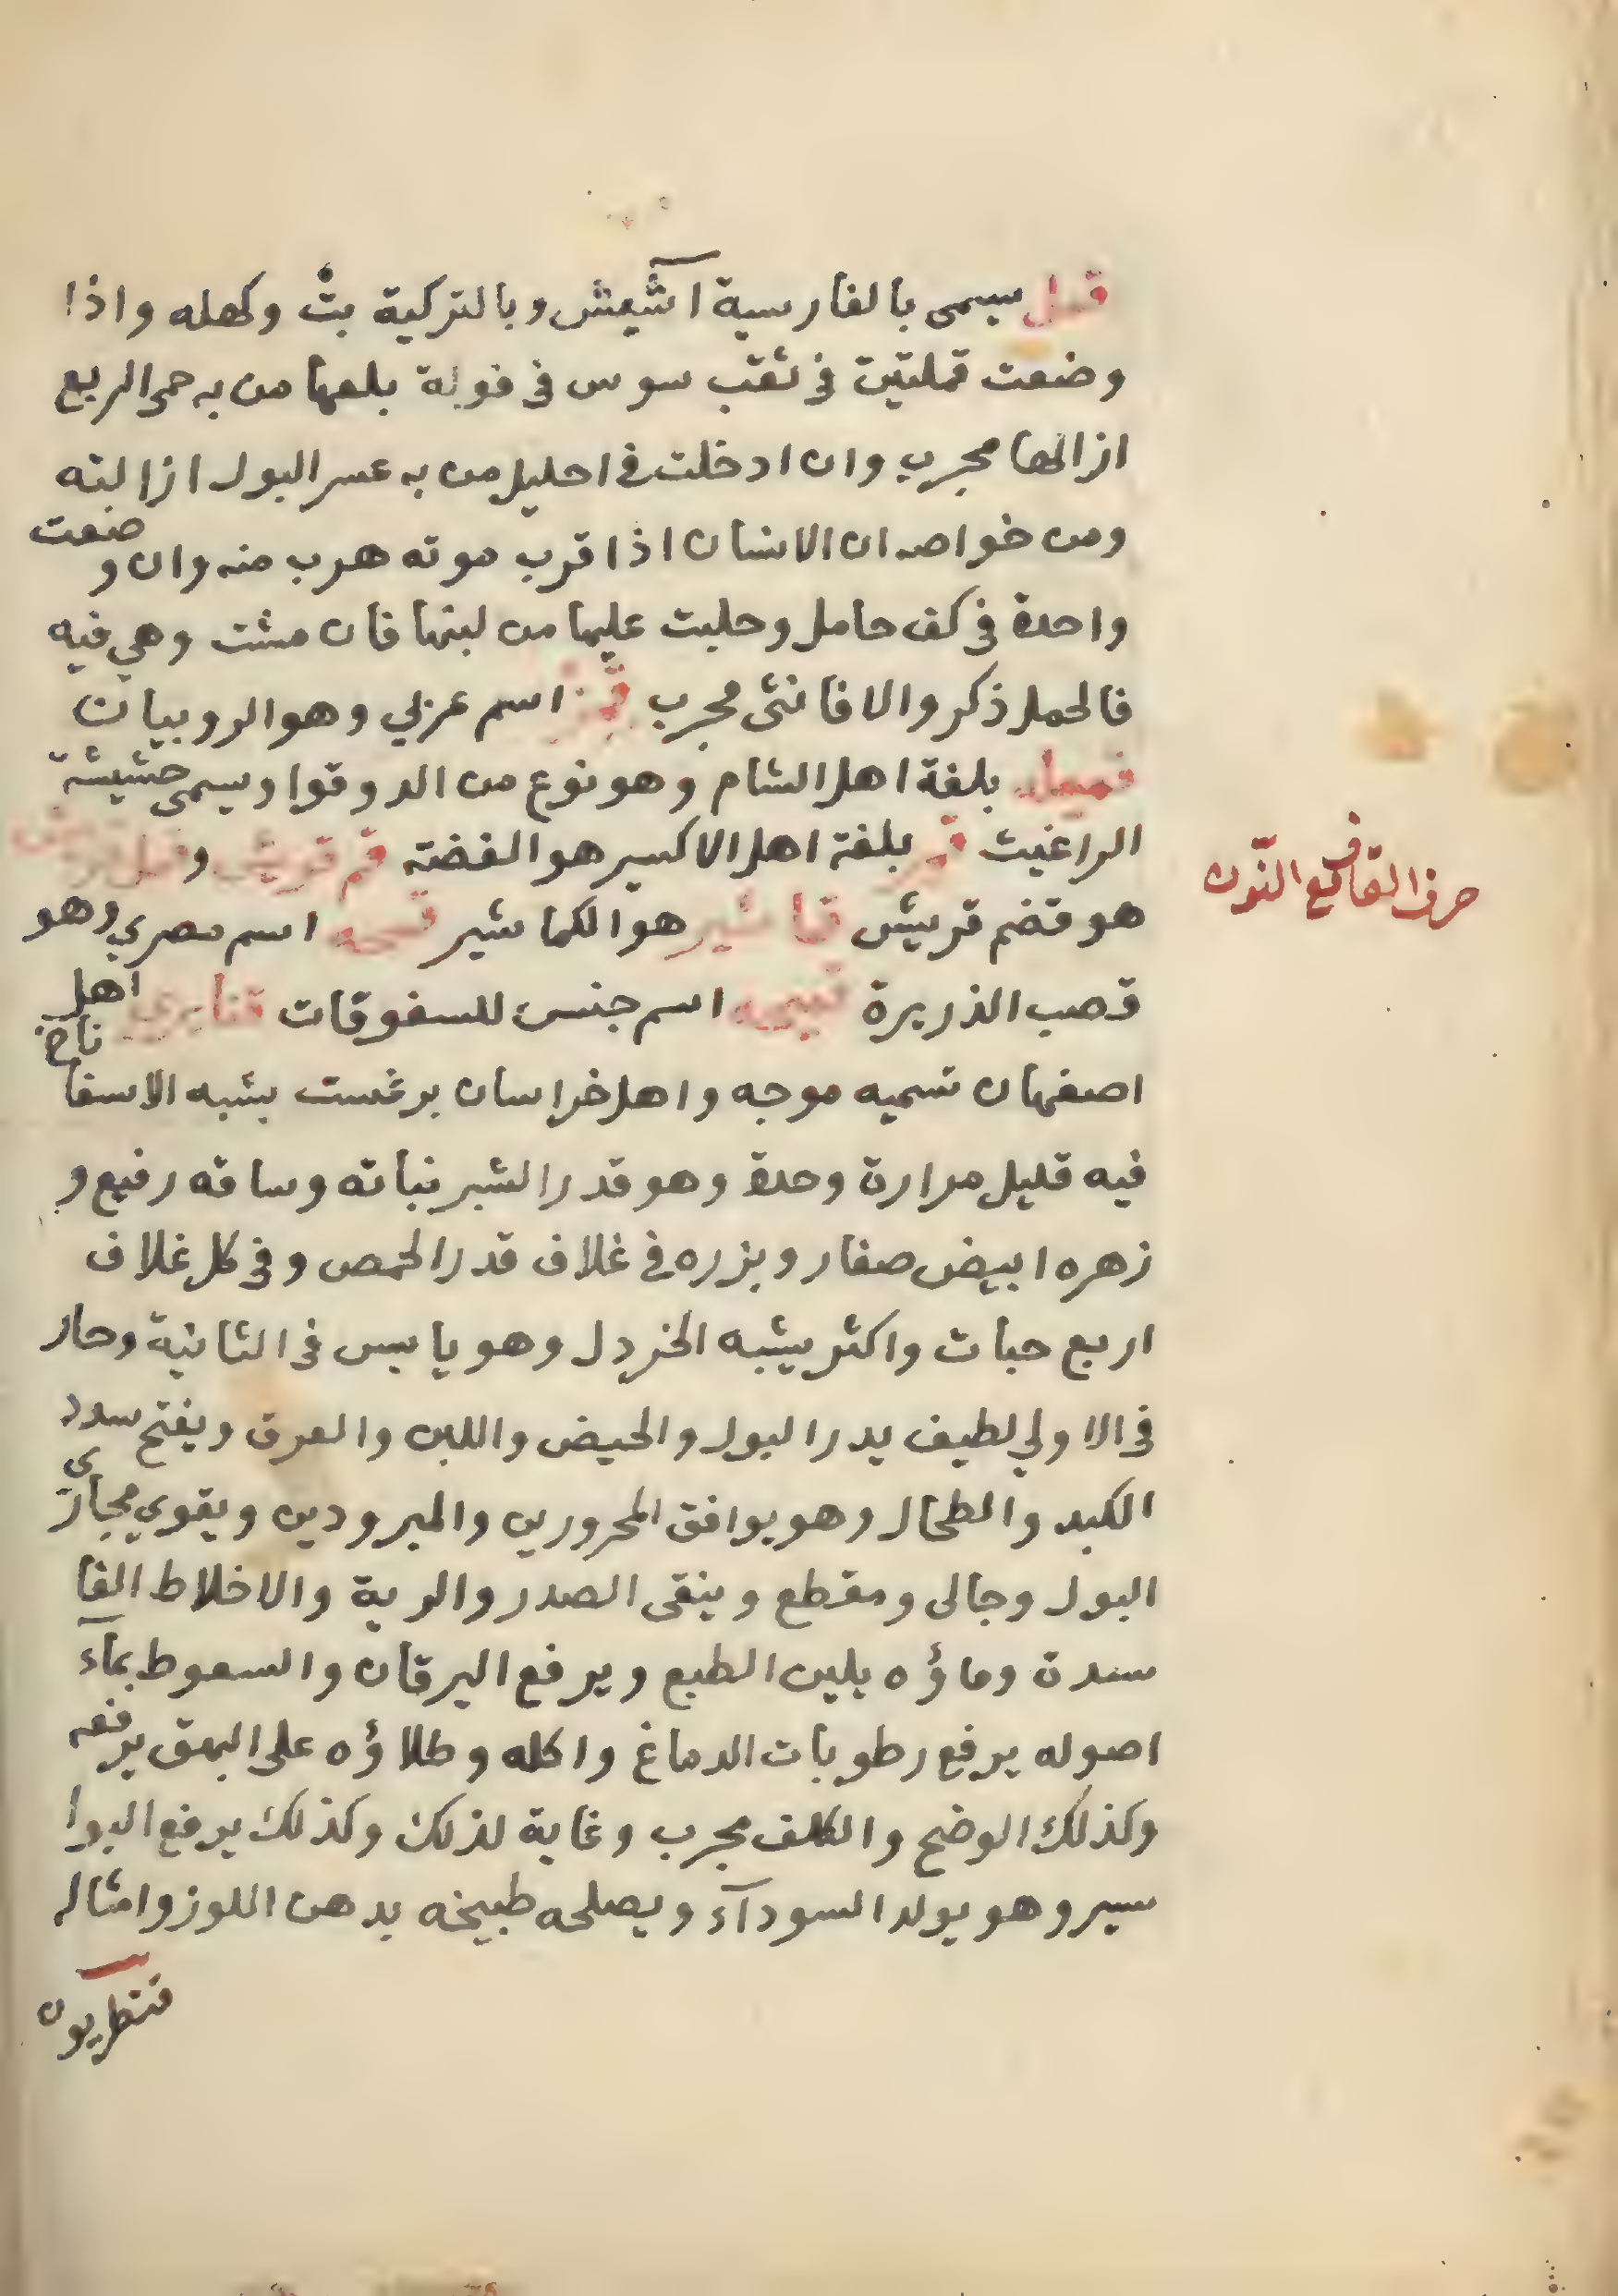 قمل يسمى بالفارسية آشيش وبالتركية بت وكهله واذا
وضعت قملتين في ثقب سوس في فولة بلعها من به حمى الربع
ازالها مجرب وان ادخلت في احليل من به عسر البول ازالته
ومن خواصه ان الانسان اذا قرب موته هرب منه وان وضعت
واحدة في كف حامل وحلبت عليها من لبنها فان مشت وهي فيه
فالحمل ذكر والا فانثى مجرب اسم عربي وهو الروبيان
بلغة اهل الشام وهو نوع من الدوقوا ويسمى حشيشة
البراغيث قمر بلغة اهل الاكسير هو الفضة قم قريش و
هو قضم قريش قاشير هو الكماشير قمحه اسم مصري وهو
قصب الذريرة قميحه اسم جنس للسفوفات قنابري اهل
اصفهان تسميه موجه واهل خراسان برغست يشبه الاسفاناخ
فيه قليل مرارة وحدة وهو قدر الشبر نباته وساقه رفيع و
زهره ابيض صغار وبزره في غلاف قدر الحمص وفي كل غلاف
اربع حبات واكثر يشبه الخردل وهو يابس في الثانية وحار
في الاولي لطيف يدر البول والحيض واللبن والعرق ويفتح سدد
الكبد والطحال وهو يوافق المحرورين والمبرودين ويقوي مجاري
البول وجالى ومقطع وينقى الصدر والرية والاخلاط الفا
سدة وماؤه يلين الطبع ويرفع اليرقان والسعوط بمآء
اصوله يرفع رطوبات الدماغ واكله وطلاؤه على البهق يرفعه
وكذلك الوضح والكلف مجرب وغاية لذلك وكذلك يرفع البوا
سير وهو يولد السودآء ويصلحه طبيخه بدهن اللوز وامثاله
قنطريون
حرف القاف مع النّون